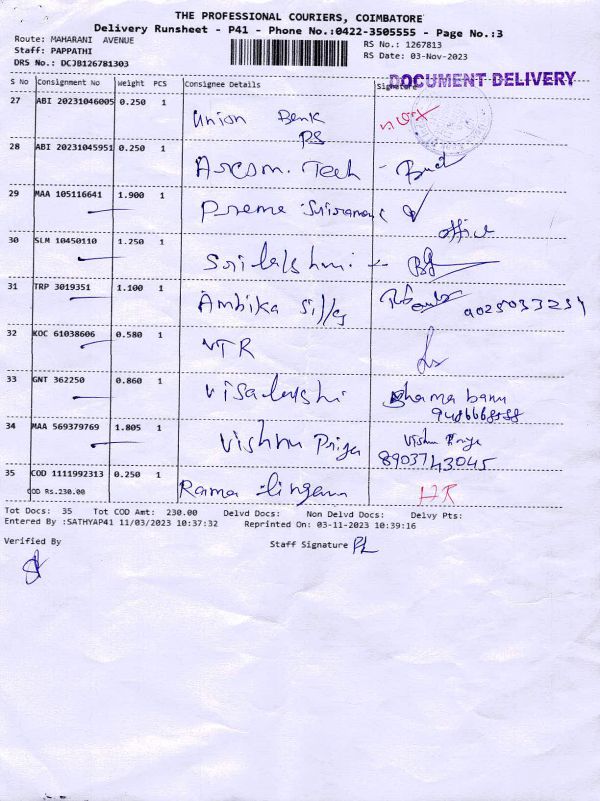 THE PROFESSIONAL COURIERS, COIMBATORE
Delivery Runsheet - P41 - Phone No.:0422-3505555 - Page No.:3
Route: MAHARANI AVENUE
RS No.: 1267813
Staff: PAPPATHI
RS Date: 03-Nov-2023
DRS No.: DCJB126781303
DOCUMENT DELIVERY
S No Consignment No Weight PCS Consignee Details Signature
27 ABI 20231046005 0.250 1 Union Bank
RS
28 ABI 20231045951 0.250 1 Arcom. Tech
29 MAA 105116641 1.900 1 Preme
office
30 SLM 10450110 1.250 1 Sri lakshmi
31 TRP 3019351 1.100 1 Ambika Silks
32 KOC 61038606 0.580 1 VTR
33 GNT 362250 0.860 1 Visalakshi Shama banu
34 MAA 569379769 1.805 1 Vishnu Priya Vishnu Priya
8903743045
35 COD 1111992313 0.250 1 Rama lingam HR
COD Rs.230.00
Tot Docs: 35 Tot COD Amt: 230.00 Delvd Docs: Non Delvd Docs: Delvy Pts:
Entered By :SATHYAP41 11/03/2023 10:37:32 Reprinted On: 03-11-2023 10:39:16
Verified By Staff Signature